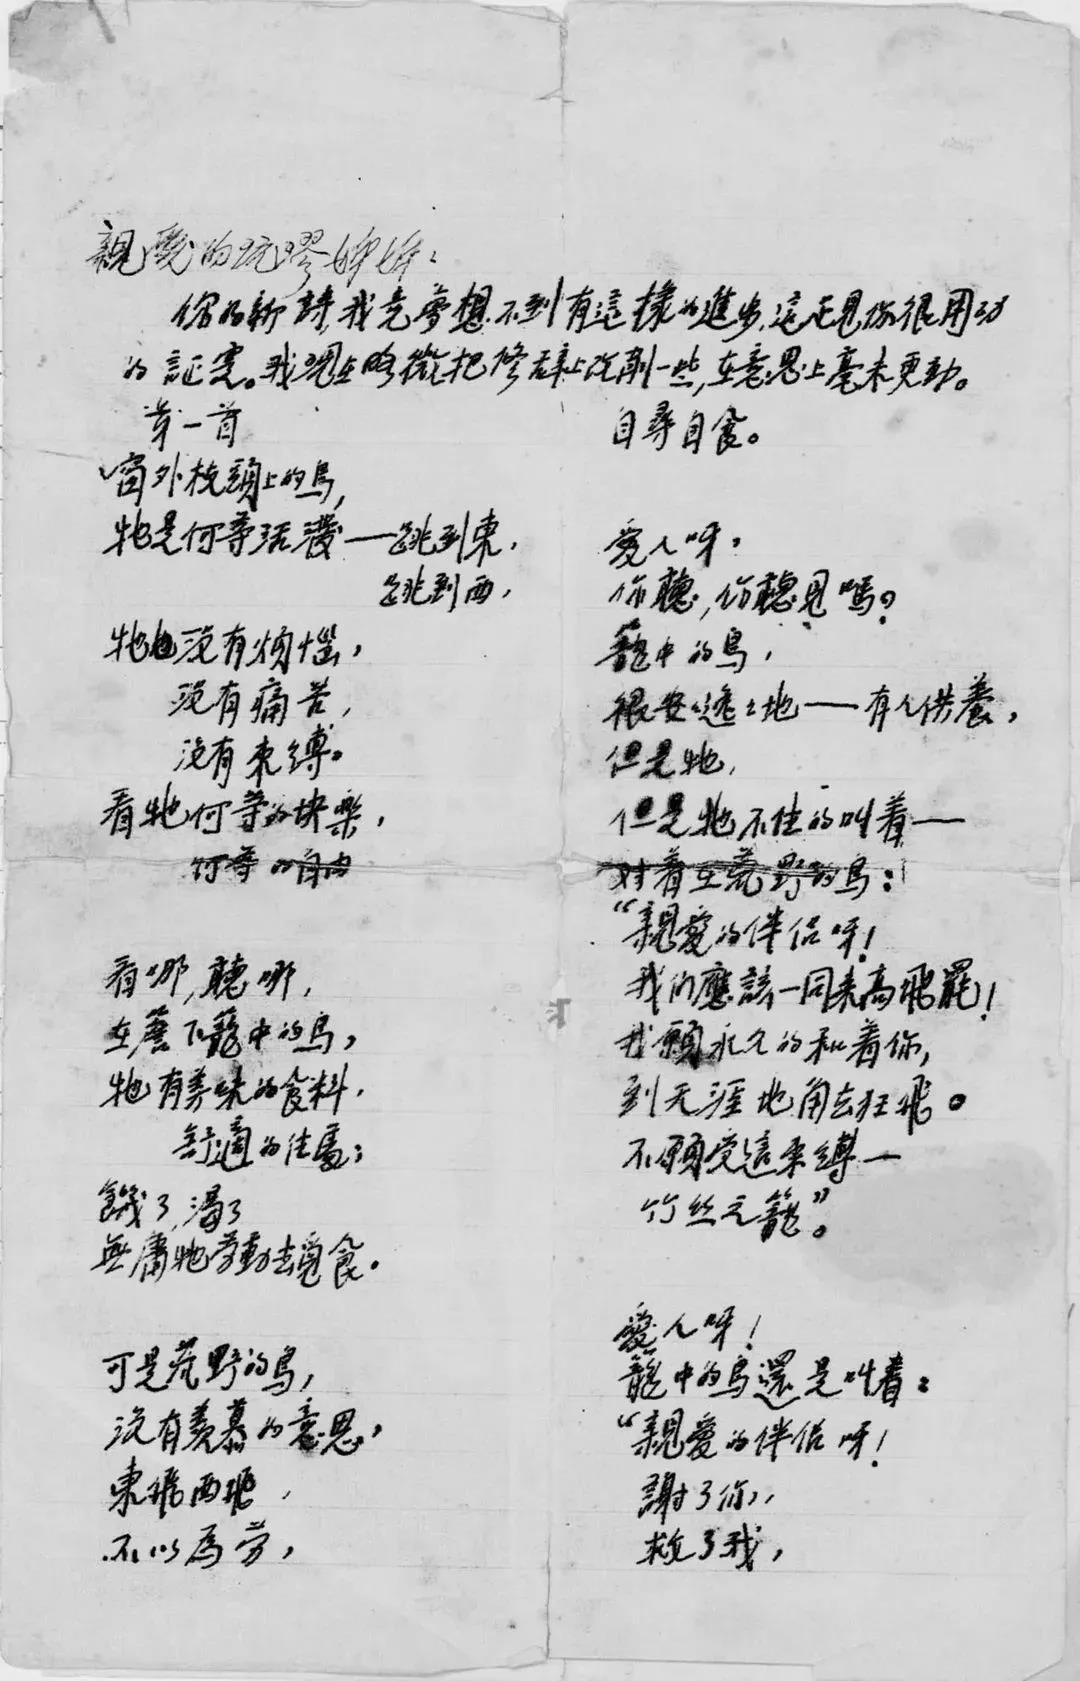 親愛的玩璆姊姊：
你的新詩，我竟夢想不到有這樣的進步，這正見你很用功
的証实。我現在略微把修辞上改削一些，在意思上毫未更動。
第一首
窗外枝頭上的鳥，
牠是何等活潑——跳到東，
跳到西，
牠也没有煩惱，
没有痛苦，
没有束縛。
看牠何等的快樂，
何等的自由
看哪，聽哪，
在簷下籠中的鳥，
牠有美味的食料，
舒適的住處；
餓了，渴了
無庸牠勞動去覓食。
可是荒野的鳥，
没有羡慕的意思，
東飛西飛，
不以為劳，
自尋自食。
愛人呀，
你聽，你聽見嗎？
籠中的鳥，
很安逸地——有人供養，
但是牠，
但是牠不住的叫着——
对着在荒野的鳥：
“親愛的伴侣呀！
我们應該一同来高飛罷！
我願永久的和着你，
到天涯地角去狂飛。
不願受這束縛—
竹丝之籠”。
愛人呀！
籠中的鳥還是叫着：
“親愛的伴侣呀！
謝了你，
救了我，